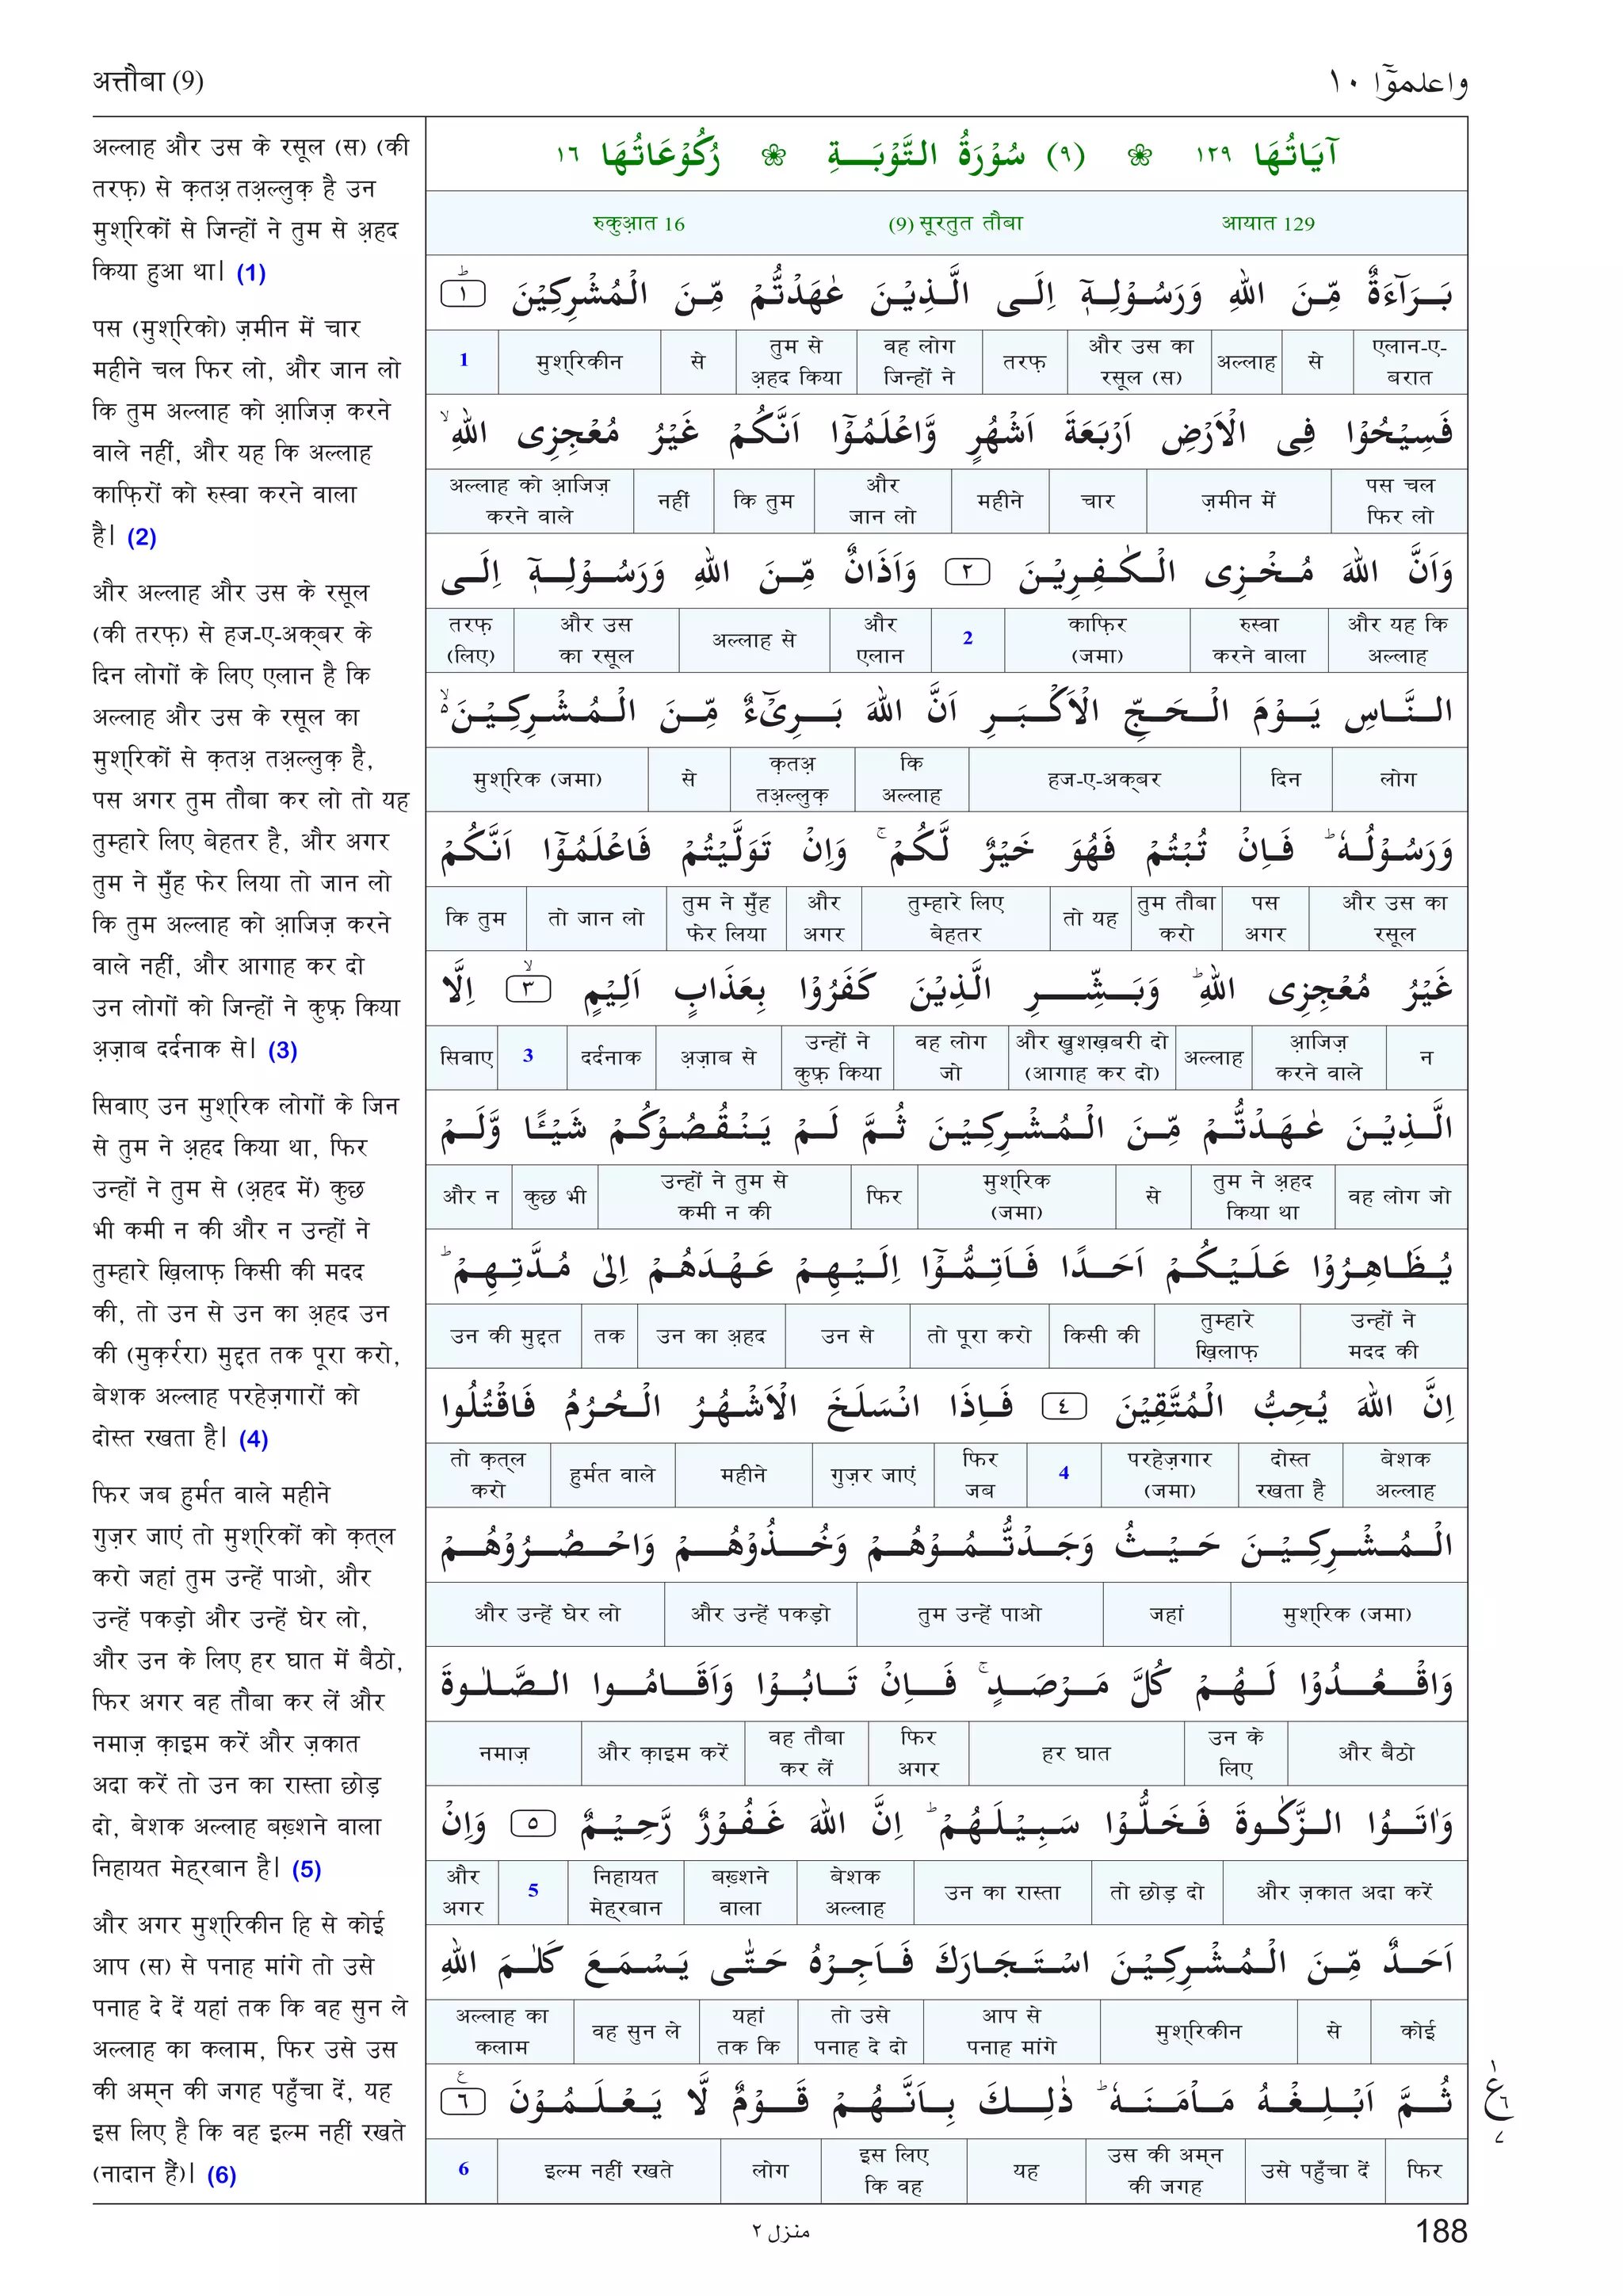 अत्तौबा (9)
واعلموٓا ١٠
अल्लाह और उस के रसूल (स) (की
तरफ़) से क़तअ़ तअ़ल्लुक़ है उन
मुश्रिकों से जिन्हों ने तुम से अ़हद
किया हुआ था। (1)
पस (मुश्रिको) ज़मीन में चार
महीने चल फिर लो, और जान लो
कि तुम अल्लाह को आ़जिज़ करने
वाले नहीं, और यह कि अल्लाह
काफ़िरों को रुस्वा करने वाला
है। (2)
और अल्लाह और उस के रसूल
(की तरफ़) से हज-ए-अक्बर के
दिन लोगों के लिए एलान है कि
अल्लाह और उस के रसूल का
मुश्रिकों से क़तअ़ तअ़ल्लुक़ है,
पस अगर तुम तौबा कर लो तो यह
तुम्हारे लिए बेहतर है, और अगर
तुम ने मुँह फेर लिया तो जान लो
कि तुम अल्लाह को आ़जिज़ करने
वाले नहीं, और आगाह कर दो
उन लोगों को जिन्हों ने कुफ़्र किया
अ़ज़ाब दर्दनाक से। (3)
सिवाए उन मुश्रिक लोगों के जिन
से तुम ने अ़हद किया था, फिर
उन्हों ने तुम से (अ़हद में) कुछ
भी कमी न की और न उन्हों ने
तुम्हारे ख़िलाफ़ किसी की मदद
की, तो उन से उन का अ़हद उन
की (मुक़र्ररा) मुद्दत तक पूरा करो,
बेशक अल्लाह परहेज़गारों को
दोस्त रखता है। (4)
फिर जब हुर्मत वाले महीने
गुज़र जाएं तो मुश्रिकों को क़त्ल
करो जहां तुम उन्हें पाओ, और
उन्हें पकड़ो और उन्हें घेर लो,
और उन के लिए हर घात में बैठो,
फिर अगर वह तौबा कर लें और
नमाज़ क़ाइम करें और ज़कात
अदा करें तो उन का रास्ता छोड़
दो, बेशक अल्लाह बख़्शने वाला
निहायत मेह्रबान है। (5)
और अगर मुश्रिकीन हि से कोई
आप (स) से पनाह मांगे तो उसे
पनाह दे दें यहां तक कि वह सुन ले
अल्लाह का कलाम, फिर उसे उस
की अम्न की जगह पहुँचा दें, यह
इस लिए है कि वह इल्म नहीं रखते
(नादान हैं)। (6)
اٰيَاتُهَا ١٢٩ ❀ (٩) سُوْرَةُ التَّوْبَةِ ❀ رُكُوْعَاتُهَا ١٦
रुकुआ़त 16 (9) सूरतुत तौबा आयात 129
بَرَآءَةٌ مِّنَ اللهِ وَرَسُوْلِهٖٓ اِلَى الَّذِيْنَ عٰهَدْتُّمْ مِّنَ الْمُشْرِكِيْنَ ؕ ١
1 | मुश्रिकीन | से | तुम से अ़हद किया | वह लोग जिन्हों ने | तरफ़ | और उस का रसूल (स) | अल्लाह | से | एलान-ए-बरात
فَسِيْحُوْا فِى الْاَرْضِ اَرْبَعَةَ اَشْهُرٍ وَّاعْلَمُوْٓا اَنَّكُمْ غَيْرُ مُعْجِزِى اللهِ ۙ
अल्लाह को आ़जिज़ करने वाले | नहीं | कि तुम | और जान लो | महीने | चार | ज़मीन में | पस चल फिर लो
وَاَنَّ اللهَ مُخْزِى الْكٰفِرِيْنَ ٢ وَاَذَانٌ مِّنَ اللهِ وَرَسُوْلِهٖٓ اِلَى
तरफ़ (लिए) | और उस का रसूल | अल्लाह से | और एलान | 2 | काफ़िर (जमा) | रुस्वा करने वाला | और यह कि अल्लाह
النَّاسِ يَوْمَ الْحَجِّ الْاَكْبَرِ اَنَّ اللهَ بَرِىْٓءٌ مِّنَ الْمُشْرِكِيْنَ ۙ۬
मुश्रिक (जमा) | से | क़तअ़ तअ़ल्लुक़ | कि अल्लाह | हज-ए-अक्बर | दिन | लोग
وَرَسُوْلُهٗ ؕ فَاِنْ تُبْتُمْ فَهُوَ خَيْرٌ لَّكُمْ ۚ وَاِنْ تَوَلَّيْتُمْ فَاعْلَمُوْٓا اَنَّكُمْ
कि तुम | तो जान लो | तुम ने मुँह फेर लिया | और अगर | तुम्हारे लिए बेहतर | तो यह | तुम तौबा करो | पस अगर | और उस का रसूल
غَيْرُ مُعْجِزِى اللهِ ؕ وَبَشِّرِ الَّذِيْنَ كَفَرُوْا بِعَذَابٍ اَلِيْمٍ ۙ ٣ اِلَّا
सिवाए | 3 | दर्दनाक | अ़ज़ाब से | उन्हों ने कुफ़्र किया | वह लोग जो | और ख़ुशख़बरी दो (आगाह कर दो) | अल्लाह | आ़जिज़ करने वाले | न
الَّذِيْنَ عٰهَدْتُّمْ مِّنَ الْمُشْرِكِيْنَ ثُمَّ لَمْ يَنْقُصُوْكُمْ شَيْـًٔا وَّلَمْ
और न | कुछ भी | उन्हों ने तुम से कमी न की | फिर | मुश्रिक (जमा) | से | तुम ने अ़हद किया था | वह लोग जो
يُظَاهِرُوْا عَلَيْكُمْ اَحَدًا فَاَتِمُّوْٓا اِلَيْهِمْ عَهْدَهُمْ اِلٰى مُدَّتِهِمْ ؕ
उन की मुद्दत | तक | उन का अ़हद | उन से | तो पूरा करो | किसी की | तुम्हारे ख़िलाफ़ | उन्हों ने मदद की
اِنَّ اللهَ يُحِبُّ الْمُتَّقِيْنَ ٤ فَاِذَا انْسَلَخَ الْاَشْهُرُ الْحُرُمُ فَاقْتُلُوا
तो क़त्ल करो | हुर्मत वाले | महीने | गुज़र जाएं | फिर जब | 4 | परहेज़गार (जमा) | दोस्त रखता है | बेशक अल्लाह
الْمُشْرِكِيْنَ حَيْثُ وَجَدْتُّمُوْهُمْ وَخُذُوْهُمْ وَاحْصُرُوْهُمْ
और उन्हें घेर लो | और उन्हें पकड़ो | तुम उन्हें पाओ | जहां | मुश्रिक (जमा)
وَاقْعُدُوْا لَهُمْ كُلَّ مَرْصَدٍ ۚ فَاِنْ تَابُوْا وَاَقَامُوا الصَّلٰوةَ
नमाज़ | और क़ाइम करें | वह तौबा कर लें | फिर अगर | हर घात | उन के लिए | और बैठो
وَاٰتَوُا الزَّكٰوةَ فَخَلُّوْا سَبِيْلَهُمْ ؕ اِنَّ اللهَ غَفُوْرٌ رَّحِيْمٌ ٥ وَاِنْ
और अगर | 5 | निहायत मेह्रबान | बख़्शने वाला | बेशक अल्लाह | उन का रास्ता | तो छोड़ दो | और ज़कात अदा करें
اَحَدٌ مِّنَ الْمُشْرِكِيْنَ اسْتَجَارَكَ فَاَجِرْهُ حَتّٰى يَسْمَعَ كَلٰمَ اللهِ
अल्लाह का कलाम | वह सुन ले | यहां तक कि | तो उसे पनाह दे दो | आप से पनाह मांगे | मुश्रिकीन | से | कोई
ثُمَّ اَبْلِغْهُ مَاْمَنَهٗ ؕ ذٰلِكَ بِاَنَّهُمْ قَوْمٌ لَّا يَعْلَمُوْنَ ع ٦
6 | इल्म नहीं रखते | लोग | इस लिए कि वह | यह | उस की अम्न की जगह | उसे पहुँचा दें | फिर
١
ع
٦
٧
منزل ٢
188